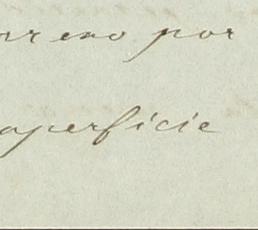 rreno por
uperficie